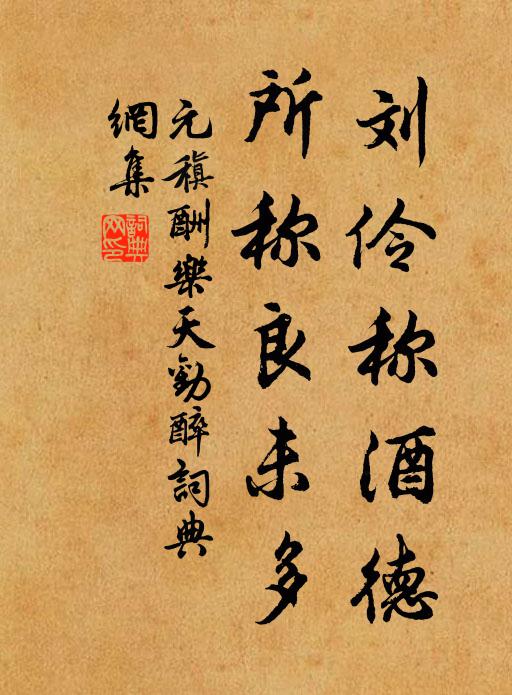 刘伶称酒德
所称良未多
元稹酬樂天勸醉詞典
網集
詞典
网印